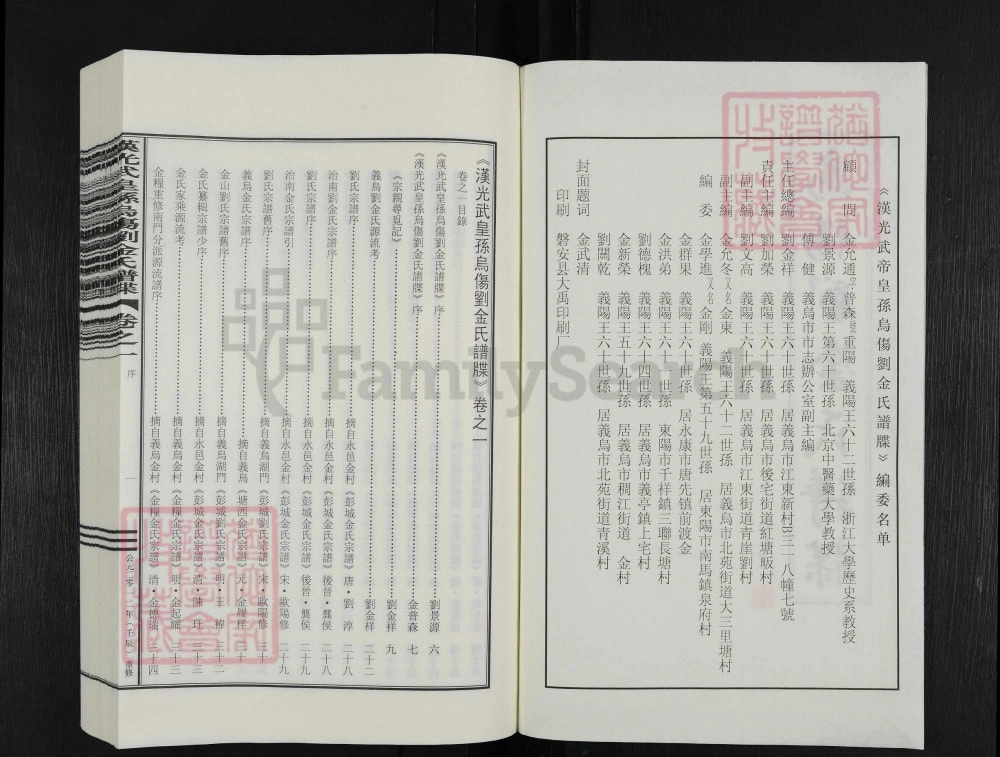 《漢光武帝皇孫烏傷劉金氏譜牒》編委名单
顧問 金允通 字普森 號重陽 義陽王六十二世孫 浙江大學歷史系教授
劉景源 義陽王第六十世孫 北京中醫藥大學教授
傅健 義烏市市志辦公室副主編
主任總編 劉金祥 義陽王六十世孫 居義烏市江東新村B三二八幢七號
責任主編 劉加榮 義陽王六十世孫 居義烏市後宅街道紅塘畈村
副主編 劉文高 義陽王六十世孫 居義烏市江東街道青崖劉村
副主編 金允冬 又名金東 義陽王六十二世孫 居義烏市北苑街道大三里塘村
編委 金學進 又名金剛 義陽王第五十九世孫 居東陽市南馬鎮泉府村
金群果 義陽王六十世孫 居永康市唐先鎮前渡金
金洪弟 義陽王六十世孫 東陽市千祥鎮三聯長塘村
劉德槐 義陽王六十四世孫 居義烏市義亭鎮上宅村
金新榮 義陽王五十九世孫 居義烏市稠江街道 金村
劉關乾 義陽王六十世孫 居義烏市北苑街道青溪村
封面题词 金武清
印刷 磐安县大禹印刷厂
《漢光武皇孫烏傷劉金氏譜牒》卷之一
卷之一目錄
《漢光武皇孫烏傷劉金氏譜牒》序 劉景源 六
《漢光武皇孫烏傷劉金氏譜牒》序 金普森 七
《宗親尋覓記》 劉金祥 九
義烏劉金氏宗譜源流考 劉金祥 二十二
劉氏宗譜序 摘自永邑金村《彭城金氏宗譜》唐·劉淳 二十八
治南金氏宗譜序 摘自永邑金村《彭城金氏宗譜》後晉·龔侯 二十八
劉氏宗譜序 摘自永邑金村《彭城金氏宗譜》後晉·龔侯 二十九
治南金氏宗譜引 摘自永邑金村《彭城金氏宗譜》宋·歐陽修 二十九
劉氏宗譜舊序 摘自義烏湖門《彭城劉氏宗譜》宋·歐陽修 三十
義烏金氏宗譜序 摘自義烏《塘西金氏宗譜》元·金履祥 三十
金山劉氏宗譜舊序 摘自義烏湖門《彭城劉氏宗譜》明·王褘
金氏纂輯宗譜少序 摘自永邑金村《彭城金氏宗譜》清·陳玗 三十三
金氏家乘源流考 摘自義烏金村《金糧金氏宗譜》明·金起耀 三十三
金糧重修南門分派源流譜序 摘自義烏金村《金糧金氏宗譜》清·金德瑞 三十四
漢光武皇孫烏傷劉金氏譜牒 卷之一 序 一 公元二零一二年（壬辰）重修
FamilySearch